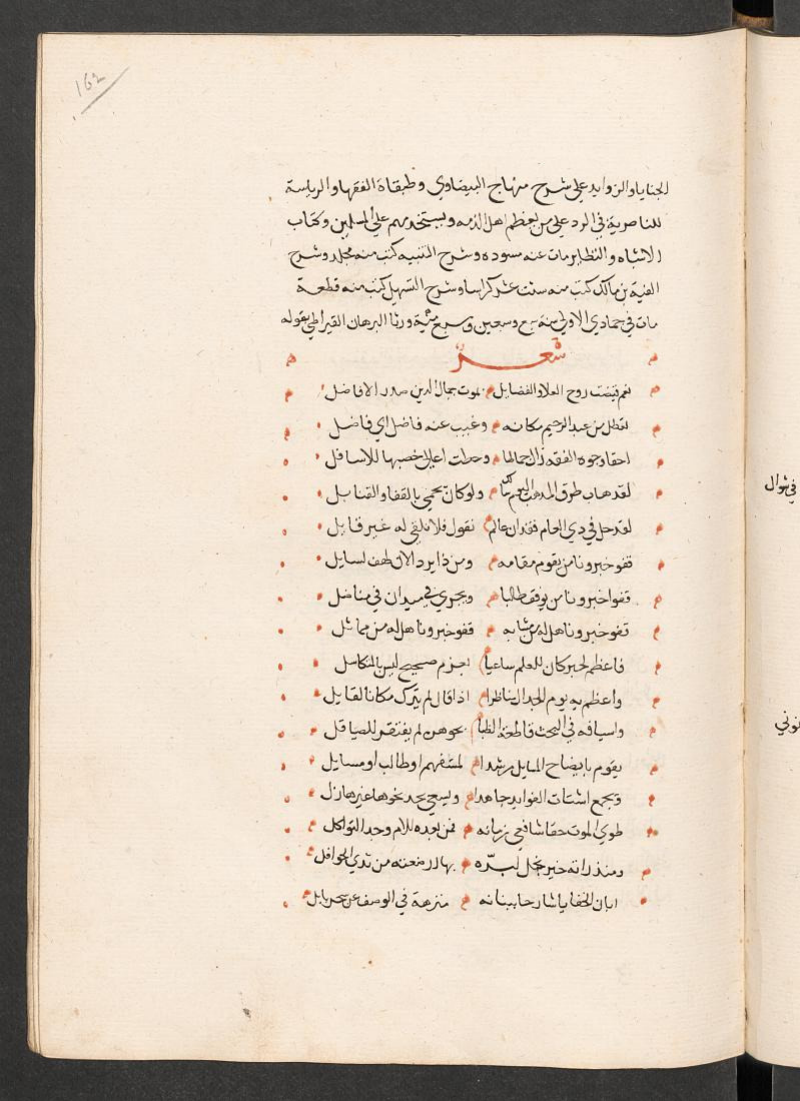 162
الجنايا والزوايد علي شرح منهاج البيضاوي وطبقاة الفقها والرياسة
للناصرية في الرد علي من يعظم اهل الذمه ويستخدمهم علي المسلمين وكتاب
الاشباه والنظاير مات عنه مسوده وشرح التنبيه كتب منه مجلد وشرح
الفية بن مالك كتب منه ست عشر كراسا وشرح التسهيل كتب منه قطعة
مات في جمادي الاولي سنة سبع وسبعين وسبع مئية ورثا البرهان القيراطي بقوله
شعر
نعم قبضت روح العلا والفضايل بموت جمال الدين صدر الافاضل
تعطل من عبد الرحيم مكانه وغيب عنه فاضل اي فاضل
احقا وجوه الفقه زال جمالها وحطت اعالي هضبها للاسافل
لقد هاب طرق المذهب اليوم سالك ولو كان يحمي بالقفا والقنابل
لقد حل في دي العام فقدان عالم نقول فلا نلفي له غير قايل
قفو خبرونا من يقوم مقامه ومن ذا يرد الان لهف لسايل
قفوا خبرونا من يوفق طالبا ويجري في ميدان في مناضل
قفو خبرونا هل له من مشابه قفو خبرونا هل له من مماثل
فاعظم لحبر كان للعلم ساعيا بعزم صحيح ليس بالمتكاسل
واعظم به يوم الجدال مناظرا اذا قال لم يترك مكانا لقايل
واسيافه في البحث قاطعة الظبا بجوهن لم يفتقر للصياقل
يقوم بايضاح المسايل مرشدا لمستفهم او طالب او مسايل
ويجمع اشتات الفوايد جاهدا ويسعي بجد نحوها غير هازل
طوي الموت حقا شافعي زمانه فمن بعده للام وجد الثواكل
ومنذ راته خير نجل لبره بها در منعته من ثدي الحوافل
ابان الخفايا شارحا ببيانه منزهة في الوصف عن سحر بابل
في شوال